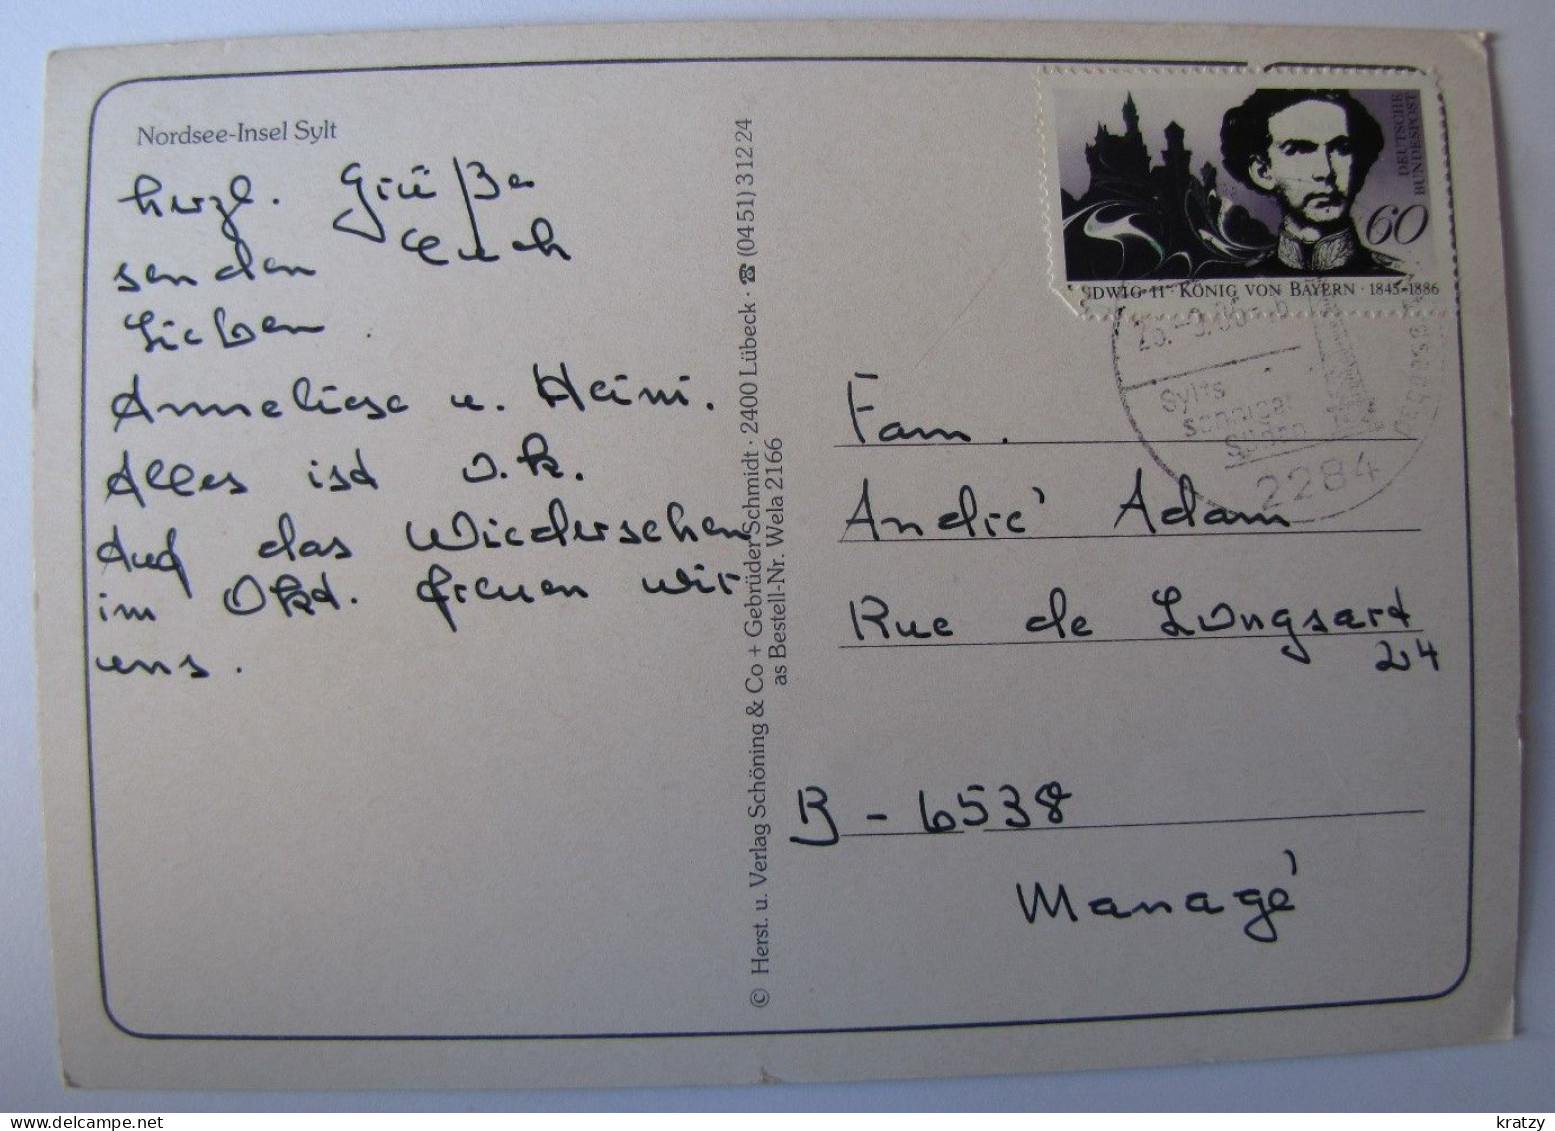 Nordsee-Insel Sylt
herzl. Grüße
senden Euch
Lieben
Anneliese u. Heini.
Alles ist o.k.
Auf das Wiedersehen
im Okt. freuen wir
uns.
© Herst. u. Verlag Schöning & Co + Gebrüder Schmidt · 2400 Lübeck · ☎ (04 51) 3 12 24
as Bestell-Nr. Wela 2166
DEUTSCHE
BUNDESPOST
60
DWIG II · KÖNIG VON BAYERN · 1845-1886
Sylts
Süden
2284
Fam.
André Adam
Rue de Longsart
24
B - 6538
Managé
www.delcampe.net
kratzy